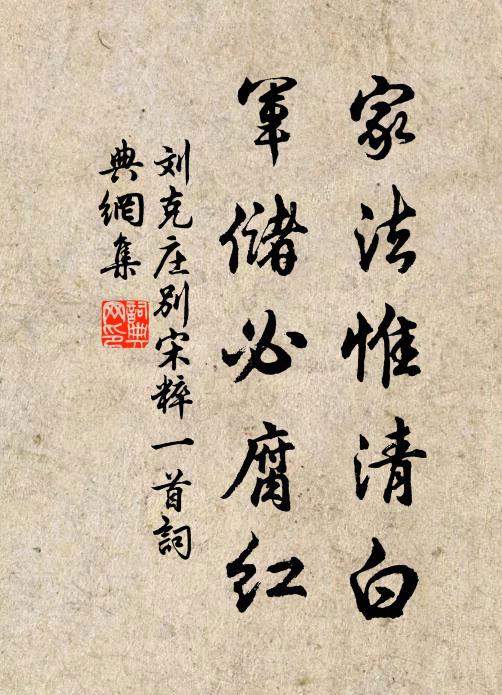 家法惟清白
军储必腐红
刘克庄别宋粹一首詞
典網集
詞典網印